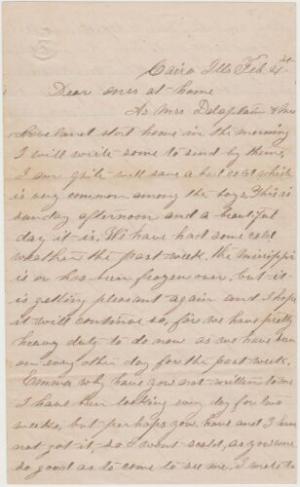 Cairo Ills Feb 4th
Dear ones at home
As Mrs Delaplain & Mrs
Loveland start home in the morning
I will write some to send by them,
I am quite well save a bad cold which
is very common among the boys. This is
sunday afternoon and a beautiful
day it is. We have had some cold
weather the past week. the
is or has been frozen over. but it
is getting pleasant again and I hope
it will continue so, for we have pretty
heavy duty to do now as we have been
on every other day for the past week.
Emma why have you not written to me
I have been looking every day for two
weeks, but perhaps you have and I have
not got it, so I wont scold, as you were
so good as to come to see me, I wrote to